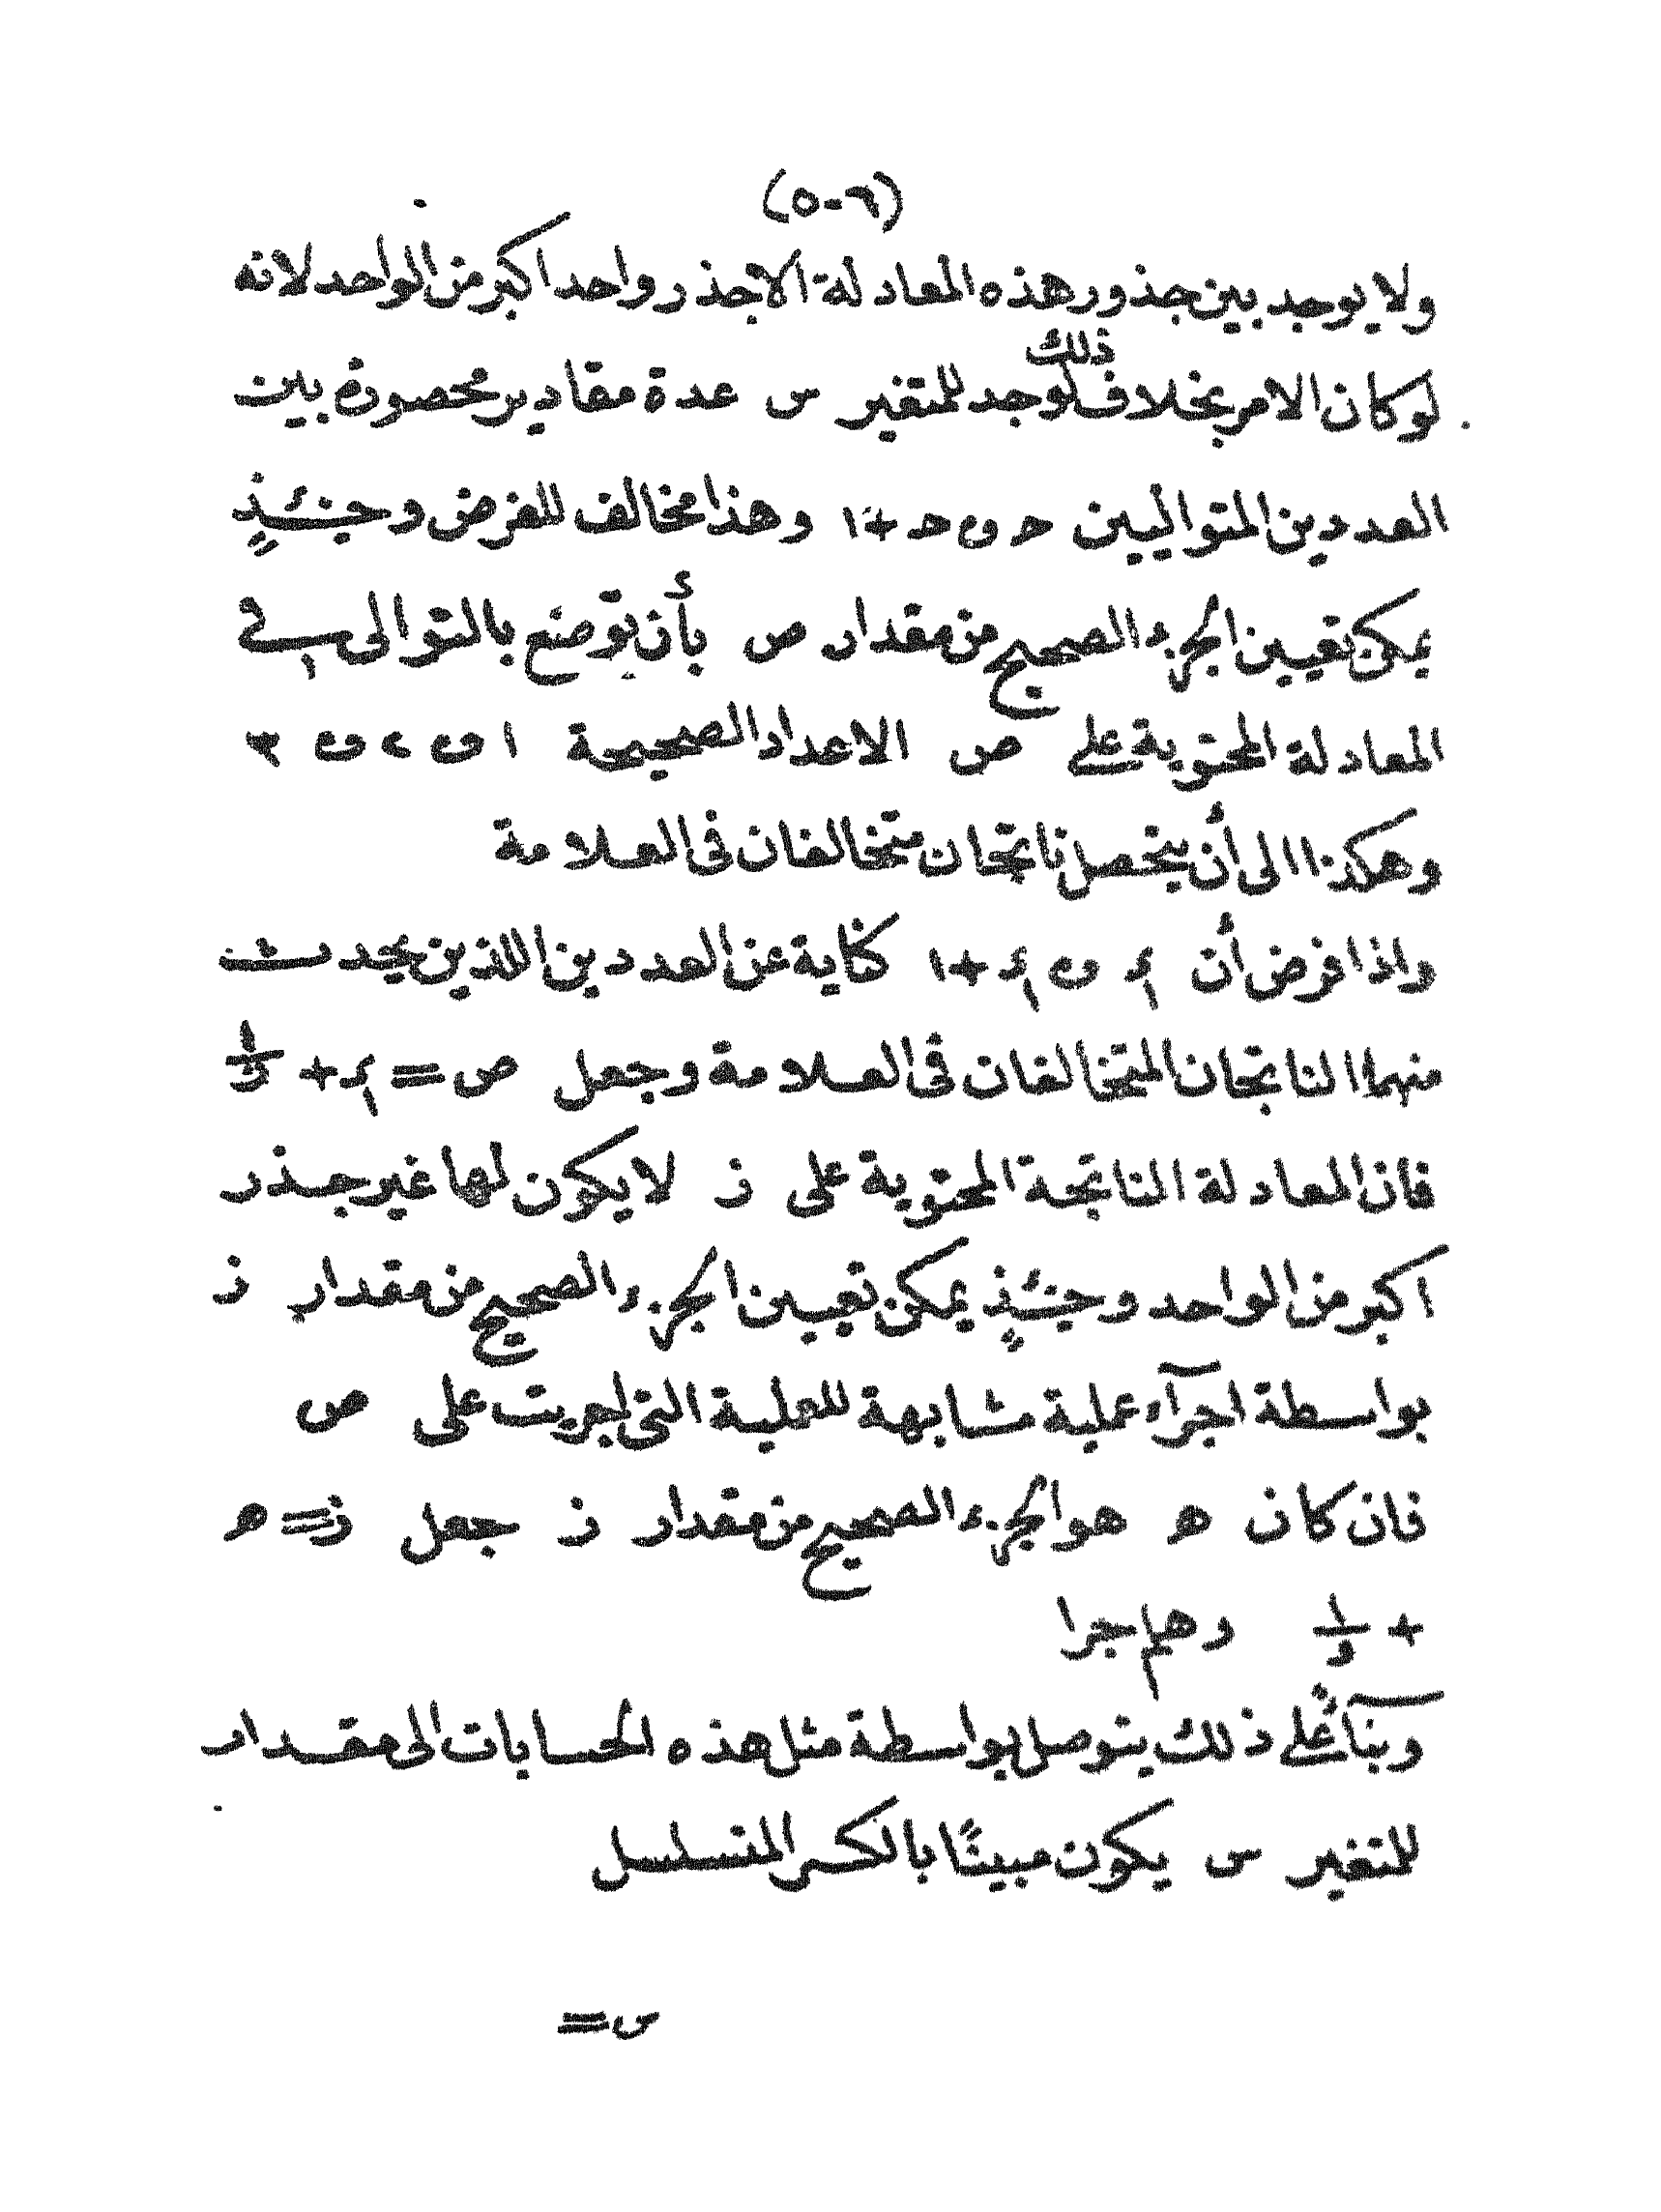 (٥٠٦)
ولا يوجد بين جذور هذه المعادلة الا جذر واحد اكبر من الواحد لانه
لو كان الامر بخلاف ذلك لوجد للمتغير س عدة مقادير محصورة بين
العددين المتواليين حـ و حـ + ١ وهذا مخالف للفرض وحينئذٍ
يمكن تعيين الجزء الصحيح من مقدار ص بأن توضع بالتوالى فى
المعادلة المحتوية على ص الاعداد الصحيحة ١ و ٢ و ٣
وهكذا الى أن يتحصل ناتجان متخالفان فى العلامة
واذا فرض أن م و م + ١ كناية عن العددين اللذين يحدث
منهما الناتجان المتخالفان فى العلامة وجعل ص = م + ١/ز
فان المعادلة الناتجة المحتوية على ز لا يكون لها غير جذر
اكبر من الواحد وحينئذٍ يمكن تعيين الجزء الصحيح من مقدار ز
بواسطة اجرآء عملية مشابهة للعملية التى اجريت على ص
فان كان هـ هو الجزء الصحيح من مقدار ز جعل ز = هـ
+ ١/و وهلم جرا
وبنآءً على ذلك يتوصل بواسطة مثل هذه الحسابات الى مقدار
للمتغير س يكون مبينًا بالكسر المتسلسل
س =